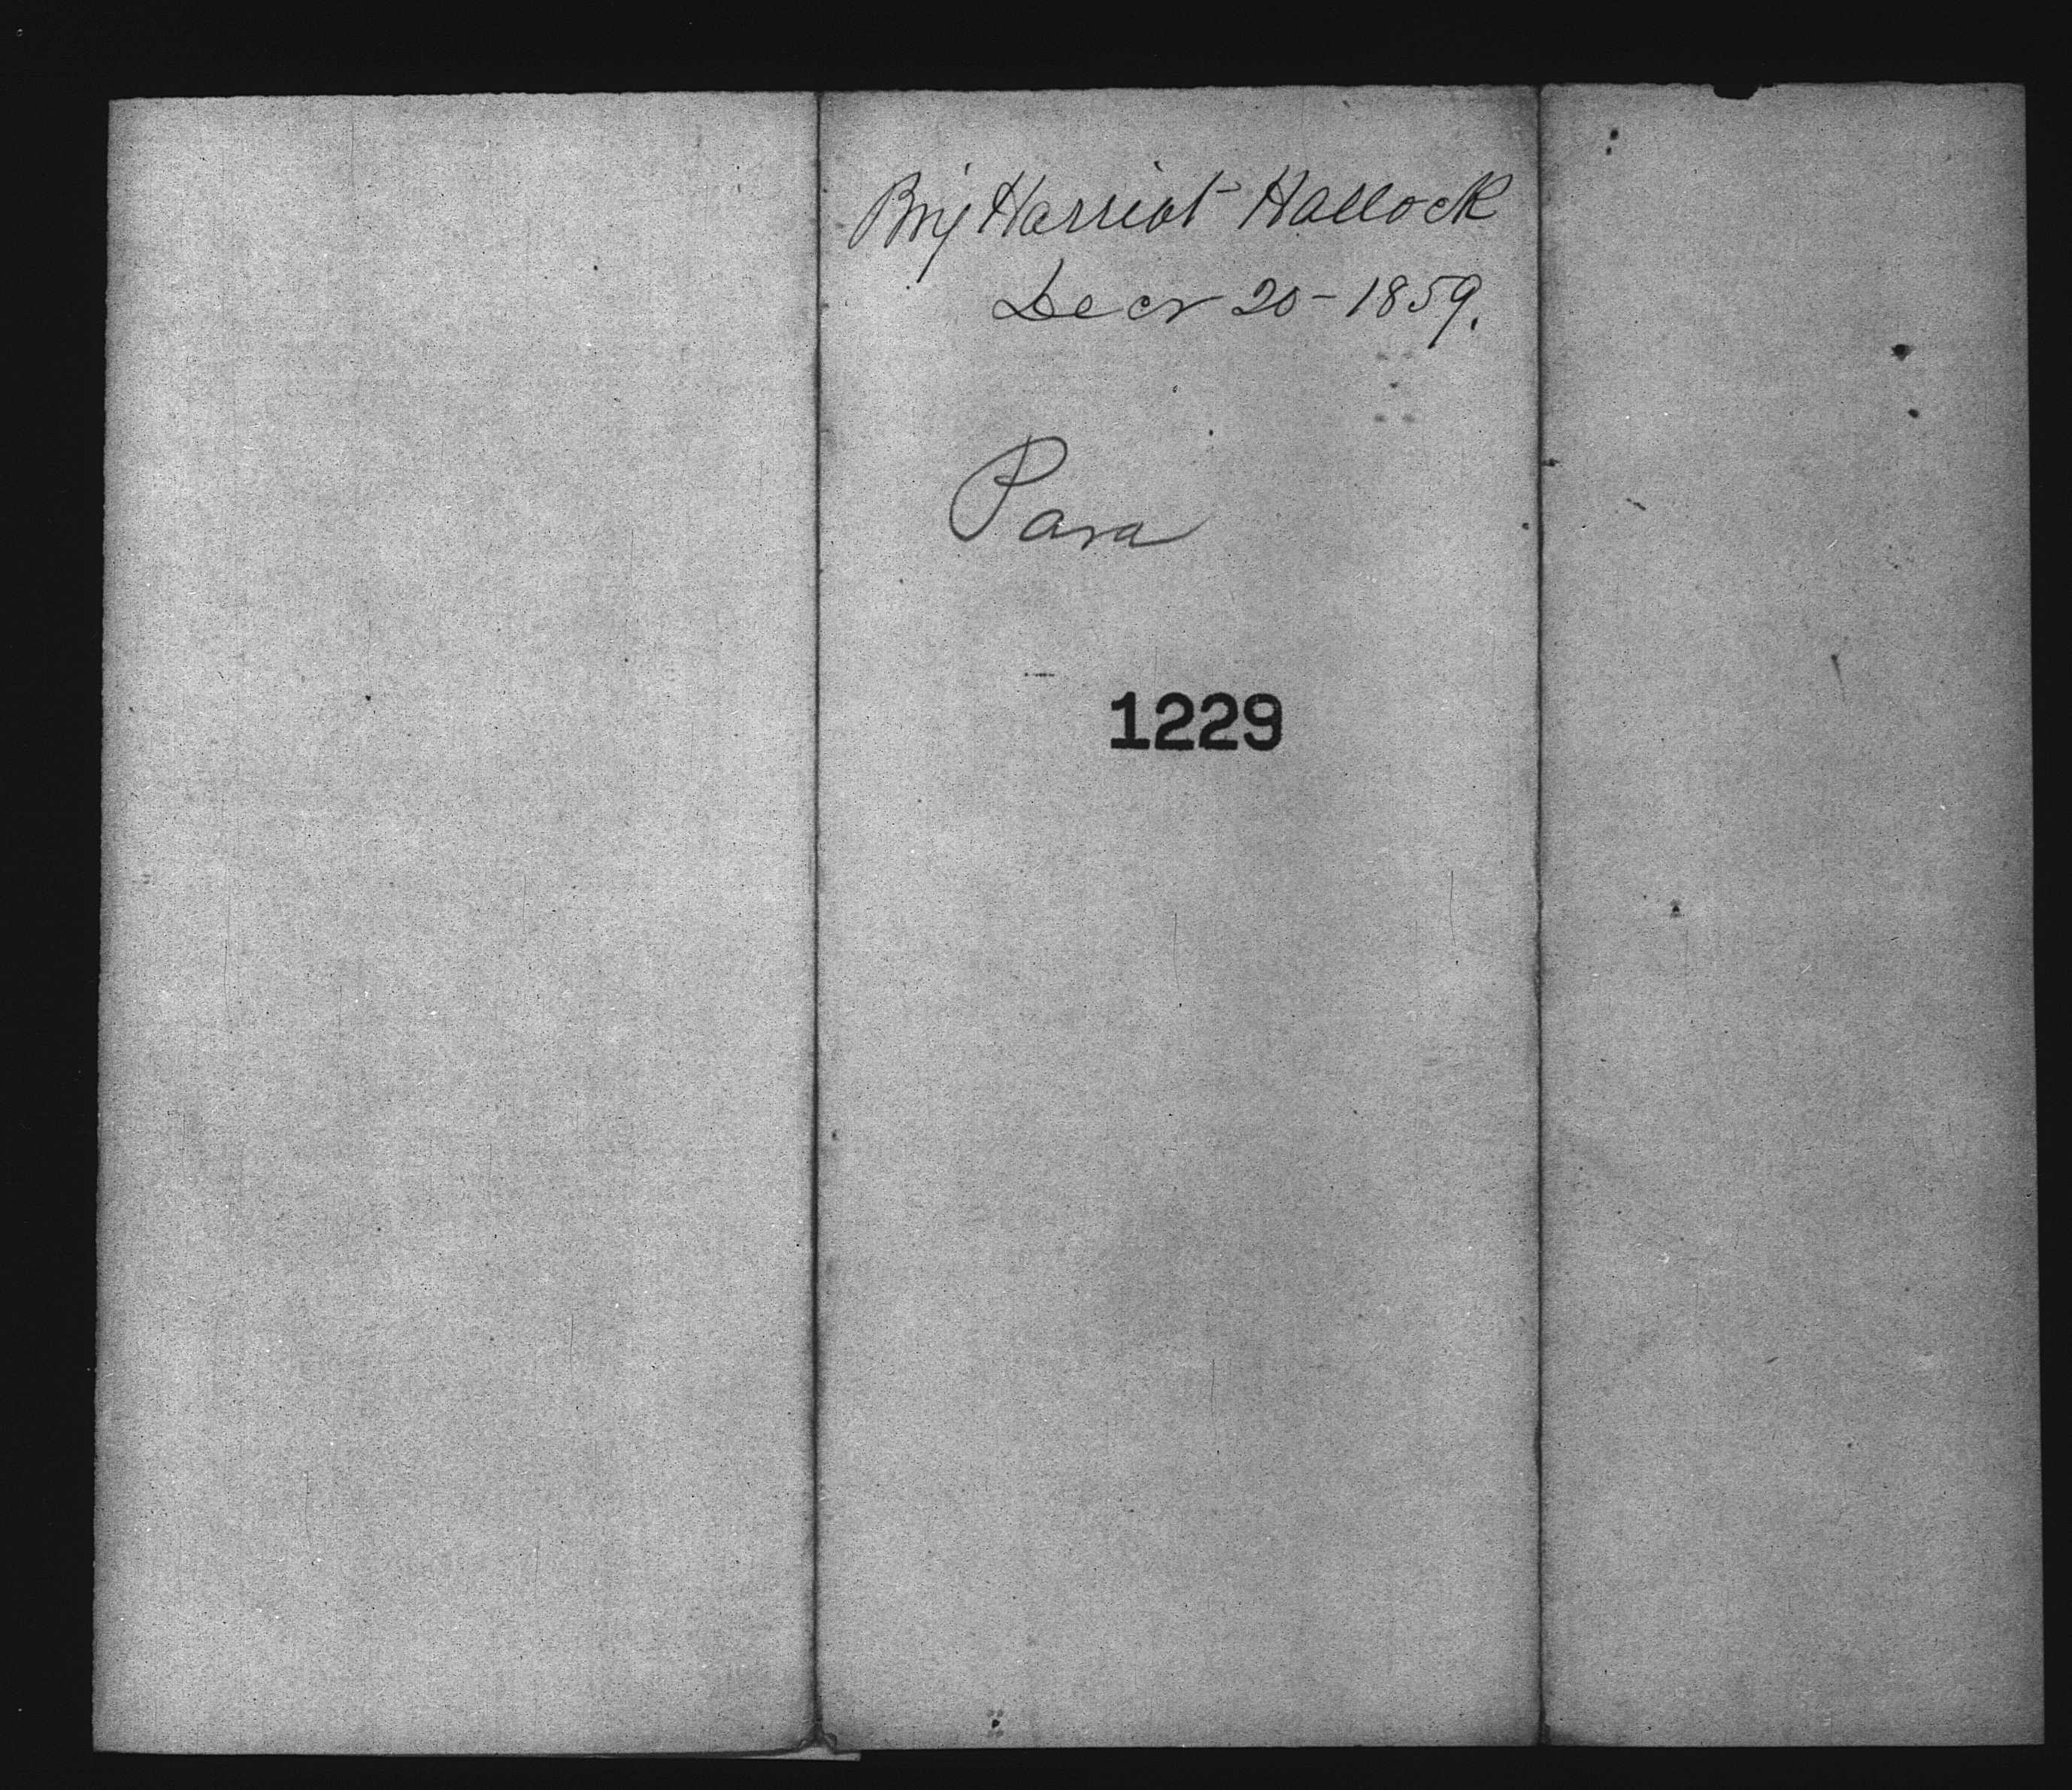 Brig Harriot Hallock
Decr 20 - 1859.
Para
1229